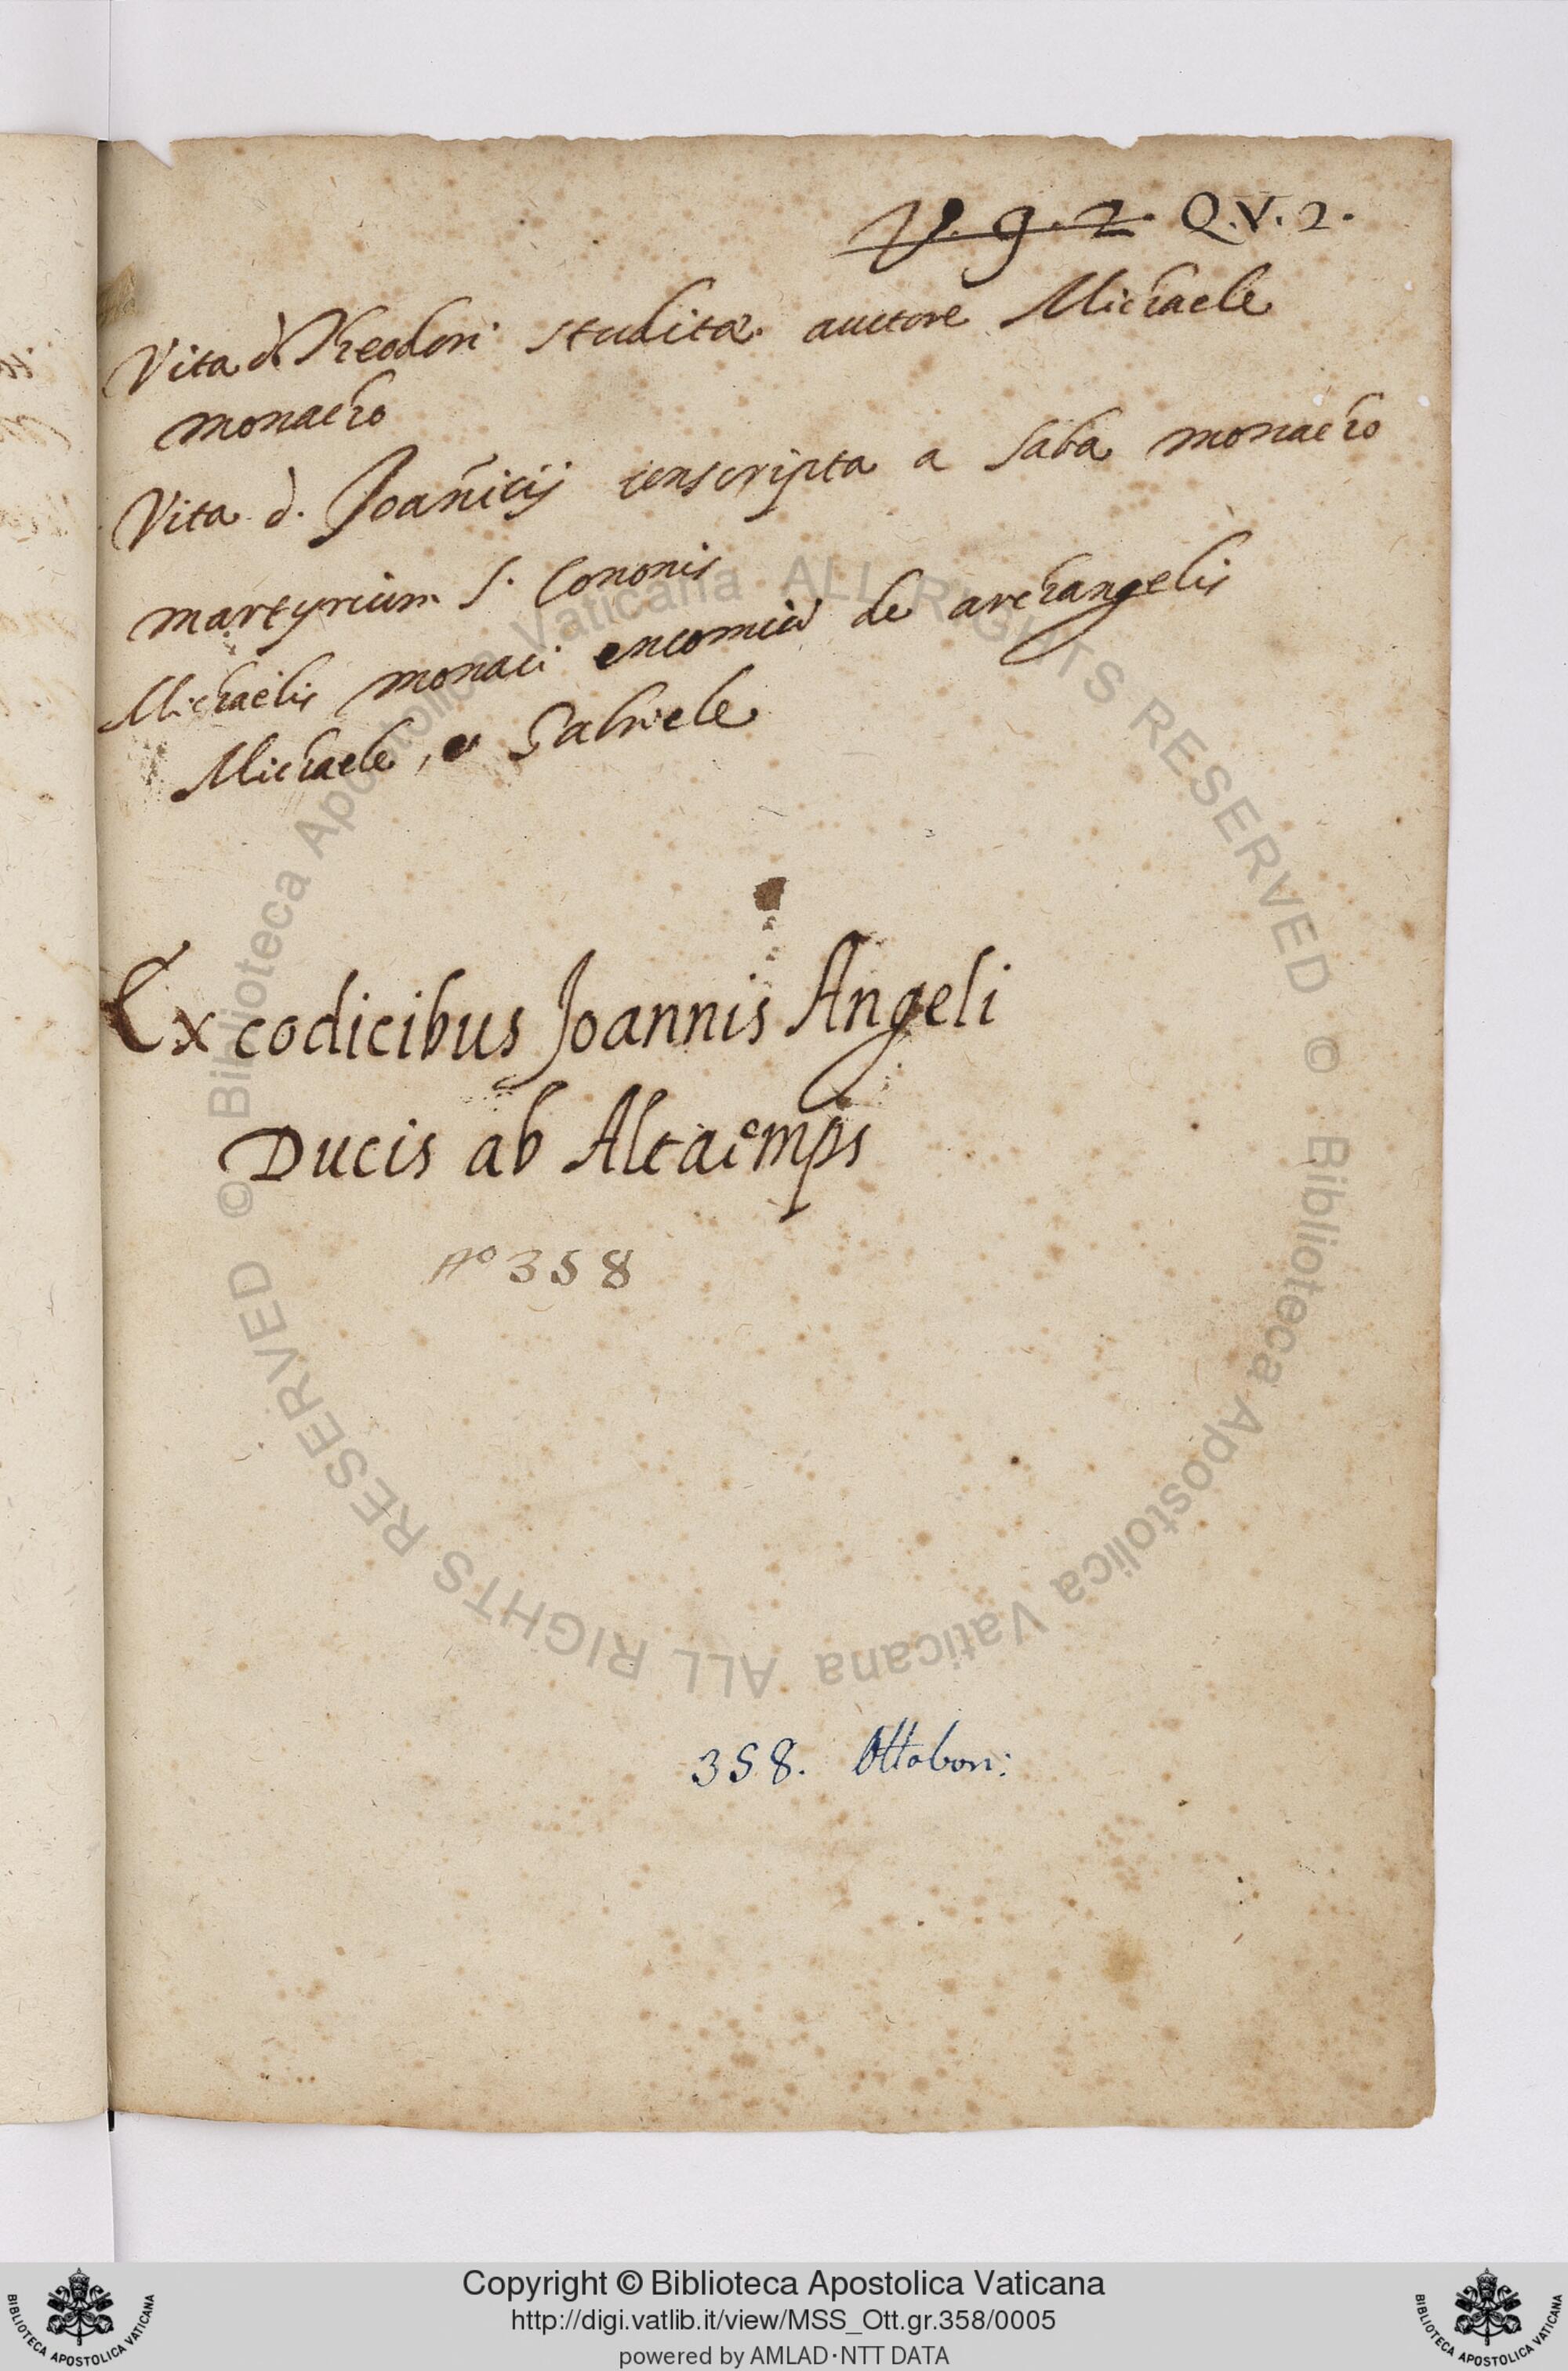 V. 9. 2. Q.V. 2.
Vita d. Theodori studitæ auctore Michaele
monacho
Vita d. Joañicij conscripta a Saba monacho
martyrium S. Cononis
Michaelis monaci encomiũ de archangelis
Michaele, et Gabriele
Ex codicibus Joannis Angeli
Ducis ab Altaemps
nº 358
358. Ottobon:
© Biblioteca Apostolica Vaticana ALL RIGHTS RESERVED
© Biblioteca Apostolica Vaticana ALL RIGHTS RESERVED
BIBLIOTECA APOSTOLICA VATICANA
Copyright © Biblioteca Apostolica Vaticana
http://digi.vatlib.it/view/MSS_Ott.gr.358/0005
powered by AMLAD·NTT DATA
BIBLIOTECA APOSTOLICA VATICANA